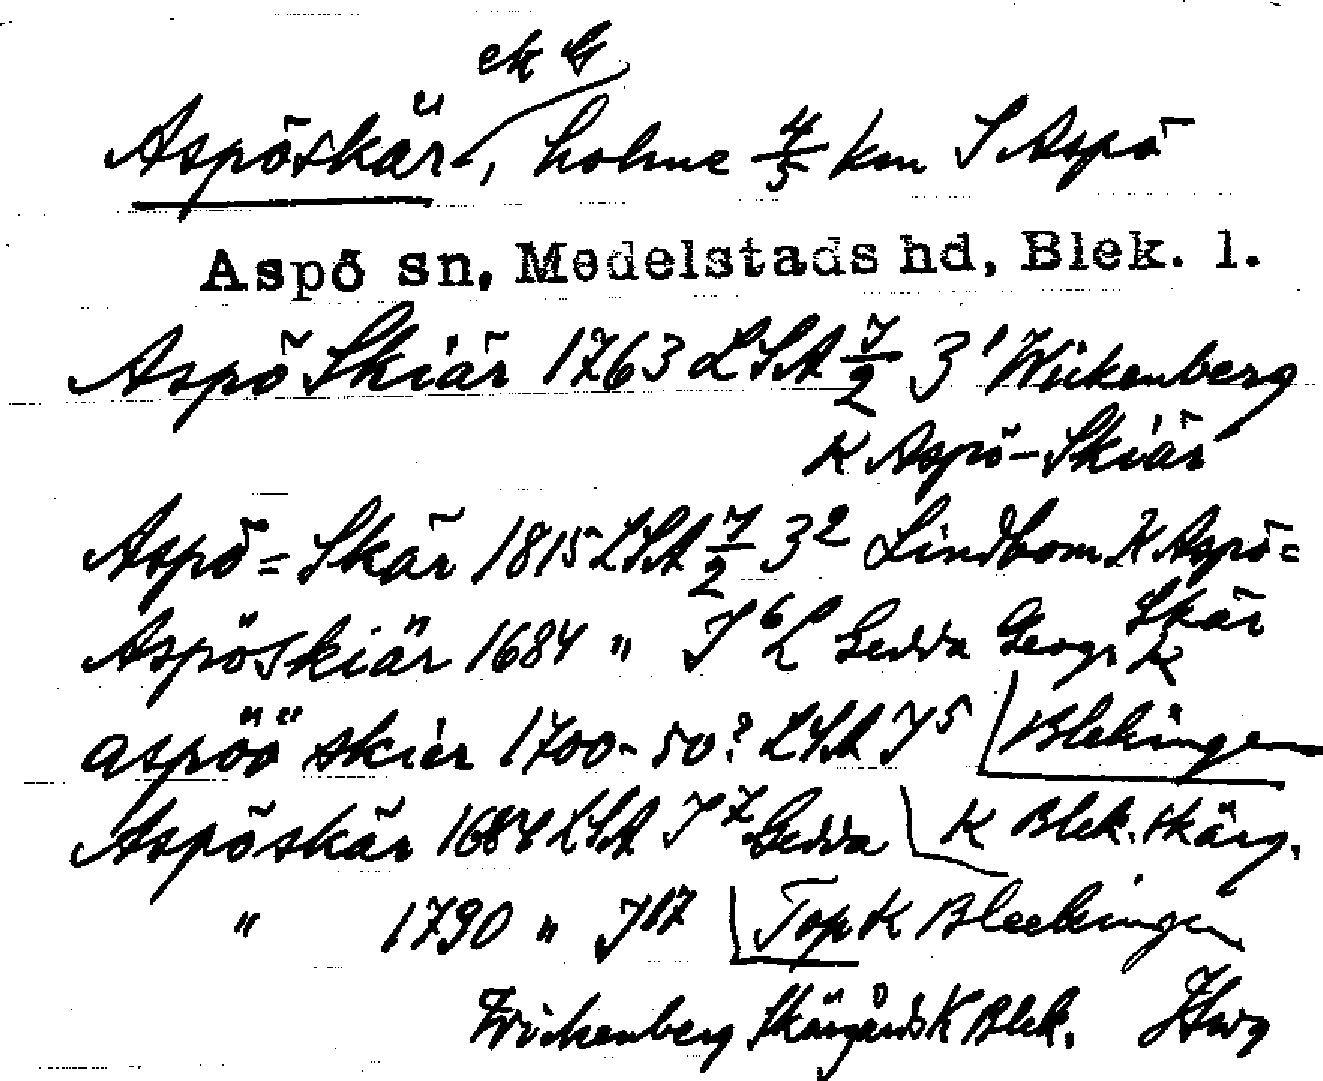 ek G
Aspöskär, holme 4/5 km S Aspö
Aspö sn, Medelstads hd, Blek. l.
Aspö Skiär 1763 LSA 7/2 3¹ Wickenberg
K Aspö-Skiär
Aspö=Skär 1815 LSA 7/2 3² Lindbom K Aspö=
Skär
Aspöskiär 1684 " J⁶ L Gedda Geogr K
aspöö skier 1700-50? LSA J⁵ Blekingen
Aspöskär 1684 LSA J⁷ Gedda K Blek. skärg.
" 1790 " J¹⁷ Top K Bleckingen
Wickenberg Skärgårds K Blek.